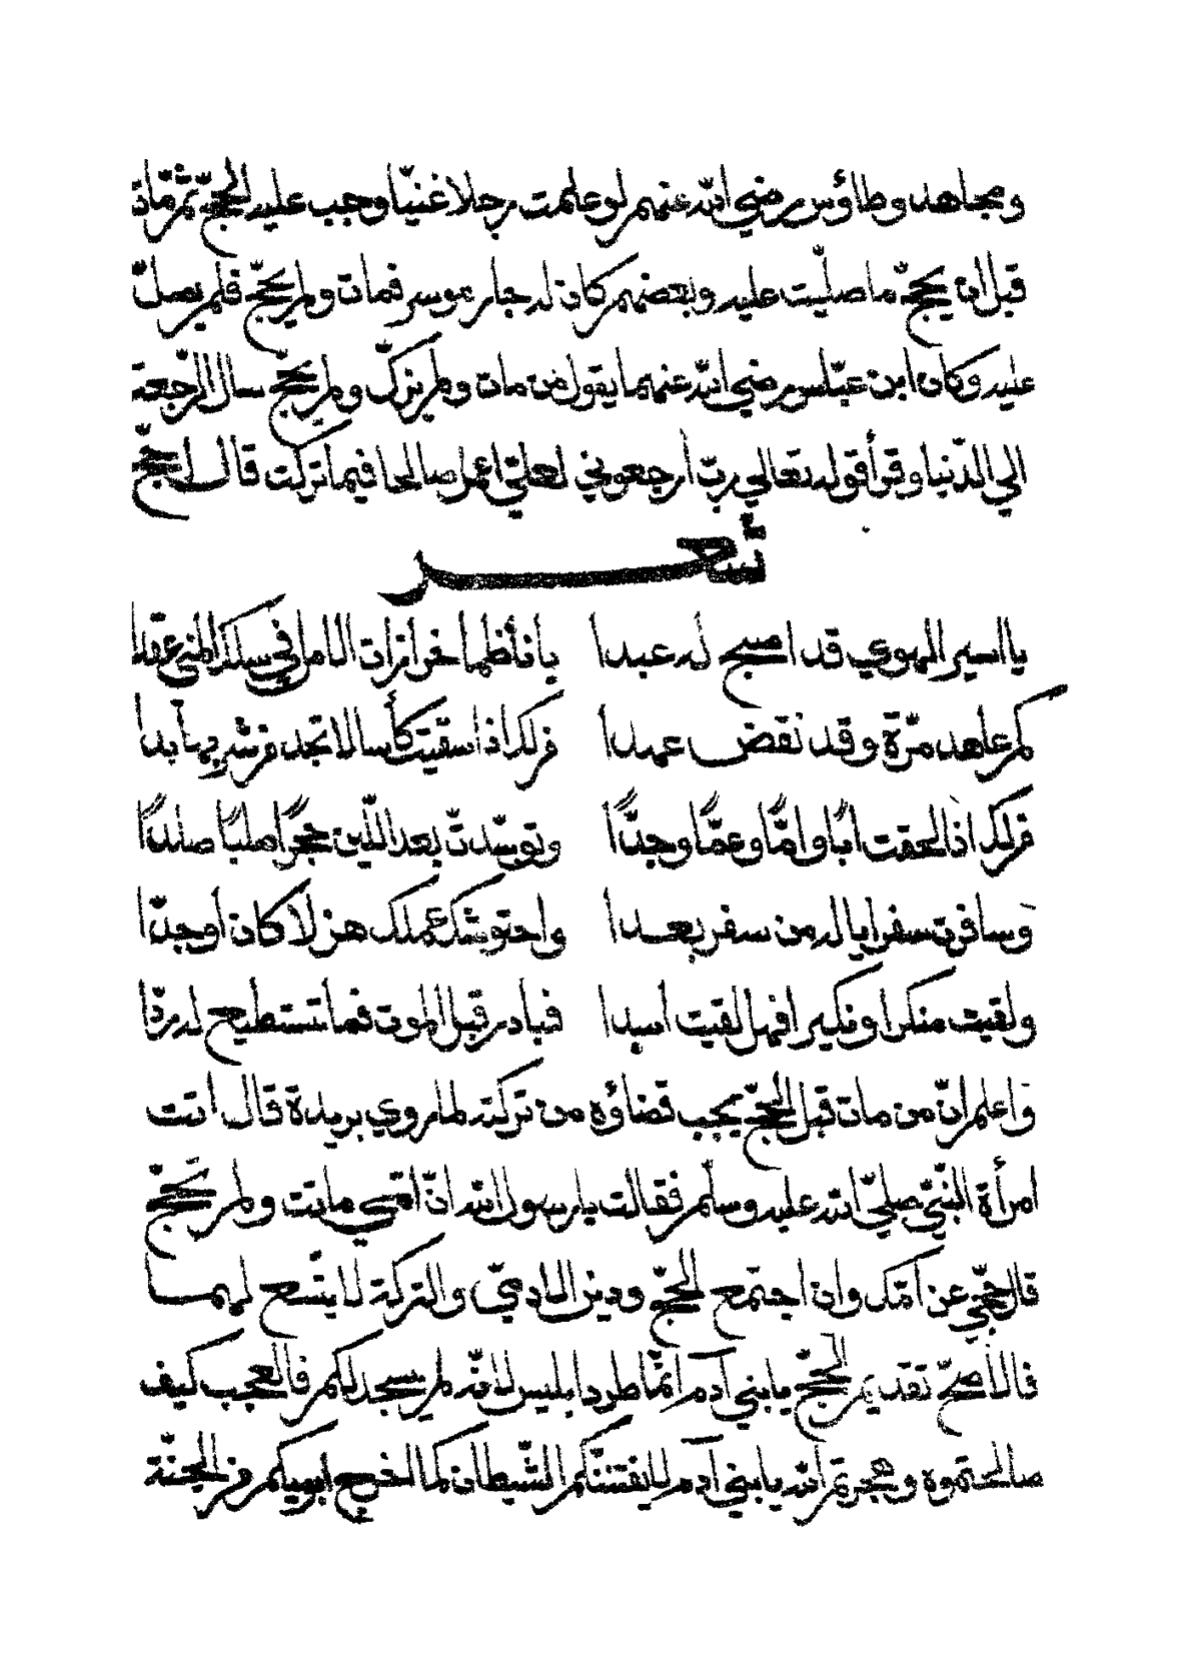 ومجاهد وطاؤس رضي الله عنهم لو علمت رجلا غنيّا وجب عليه الحجّ ثمّ مات
قبل ان يحجّ ما صلّيت عليه وبعضهم كان له جار موسر فمات ولم يحجّ فلم يصلّ
عليه وكان ابن عبّاس رضي الله عنهما يقول من مات ولم يزكّ ولم يحجّ سال الرّجعة
الي الدّنيا وقرأ قوله تعالي ربّ ارجعوني لعلّي اعمل صالحا فيما تركت قال لحجّ
شعر
يا اسير الهوي قد اصبح له عبدا يا ناظما خرازات الامل في سلك المني عقدا
كم عاهد مرّة وقد نقض عهدا من لك اذا سقيت كأسا لا تجد من شربها بدا
من لك اذا لحقت ابًا وامًّا وعمًّا وجدًّا وتوسّدتّ بعد اللّين حجرًا صلبًا صلدًا
وسافرت سفرا يا له من سفر بعدا واحتوشك عملك هزلا كان او جدّا
ولقيت منكرا ونكيرا فهل لقيت اسدا فبادر قبل الموت فما تستطيع له ردّا
واعلم انّ من مات قبل الحجّ يجب قضاؤه من تركته لما روي بريدة قال اتت
امرأة النّبيّ صلّي الله عليه وسلّم فقالت يا رسول الله انّ امّي ماتت ولم تحجّ
قال حجّي عن امّك وان اجتمع الحجّ ودين الادميّ والتركة لا يتّسع لهما
فالاصحّ تقديم الحجّ يا بني آدم انّما طرد ابليس لانّه لم يسجد لكم فالعجب كيف
صالحتموه وهجرتم الله يا بني آدم لا يفتننّكم الشّيطان كما اخرج ابويكم من الجنّة